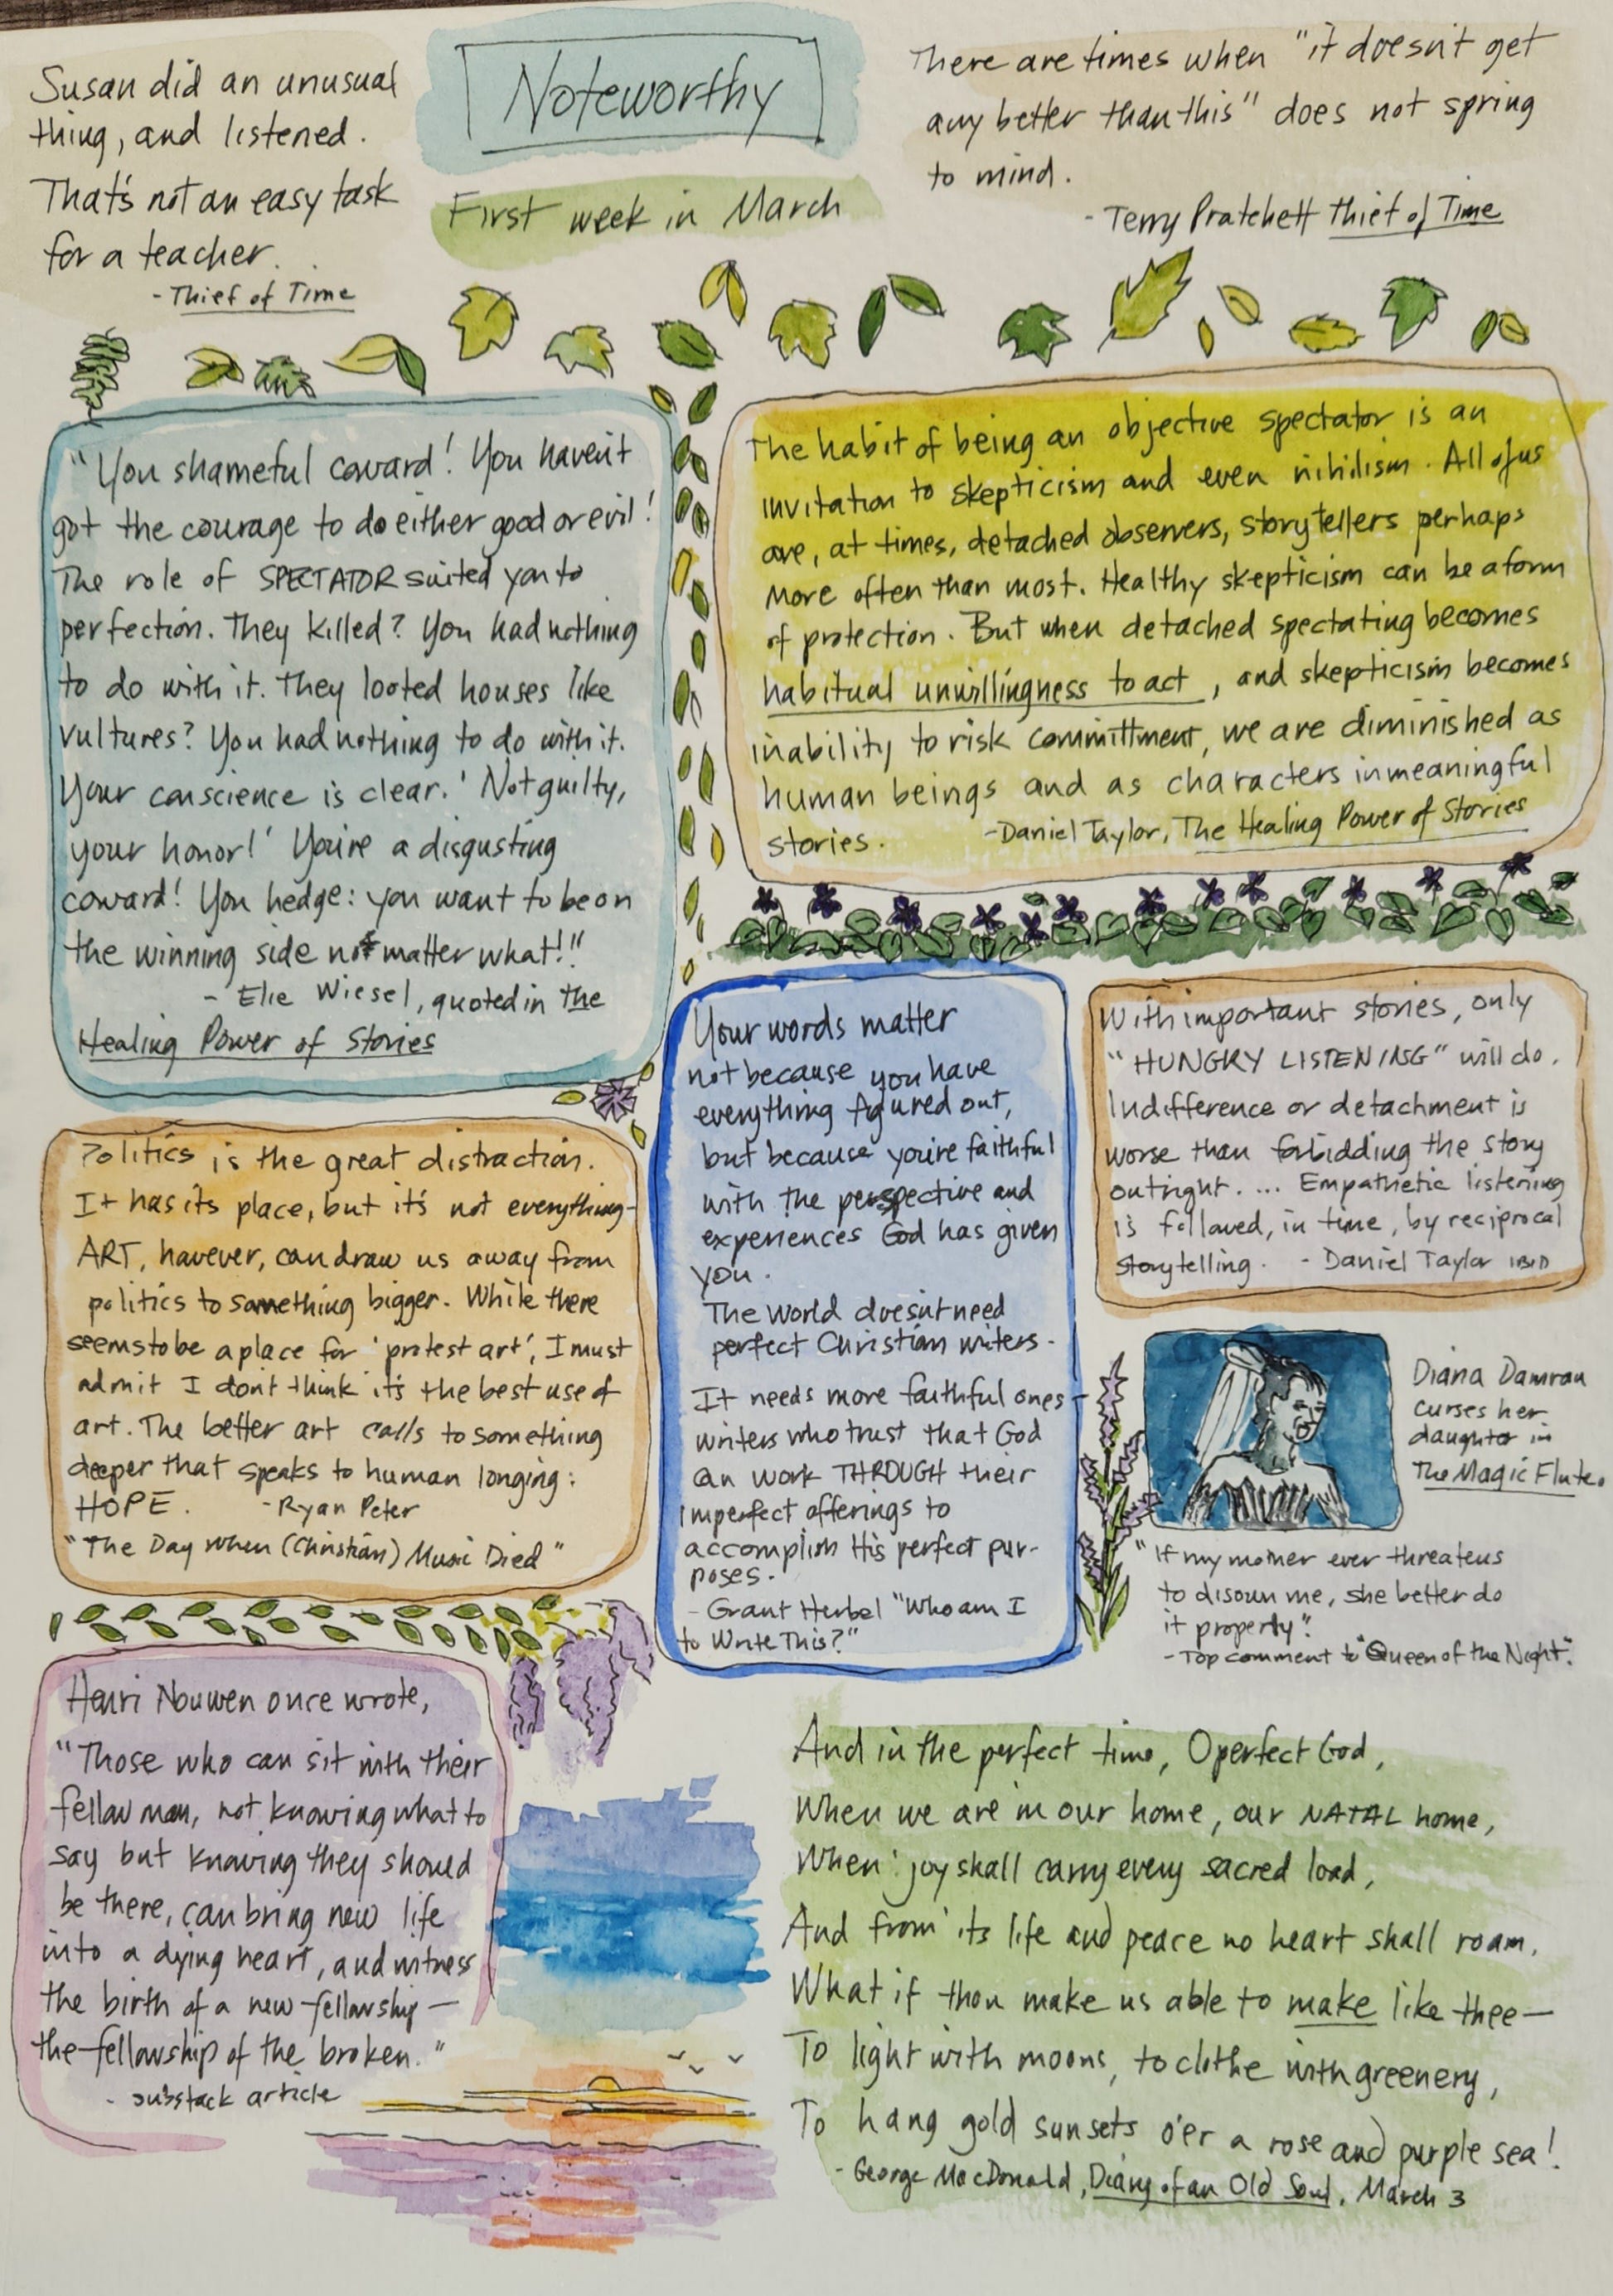 Susan did an unusual
thing, and listened.
That's not an easy task
for a teacher.
- Thief of Time
Noteworthy
First week in March
There are times when "it doesn't get
any better than this" does not spring
to mind.
- Terry Pratchett Thief of Time
"You shameful coward! You haven't
got the courage to do either good or evil!
The role of SPECTATOR suited you to
perfection. They killed? You had nothing
to do with it. They looted houses like
vultures? You had nothing to do with it.
Your conscience is clear. 'Not guilty,
your honor!' You're a disgusting
coward! You hedge: you want to be on
the winning side no matter what!"
- Elie Wiesel, quoted in The
Healing Power of Stories
The habit of being an objective spectator is an
invitation to skepticism and even nihilism. All of us
are, at times, detached observers, storytellers perhaps
more often than most. Healthy skepticism can be a form
of protection. But when detached spectating becomes
habitual unwillingness to act, and skepticism becomes
inability to risk committment, we are diminished as
human beings and as characters in meaningful
stories. - Daniel Taylor, The Healing Power of Stories
Politics is the great distraction.
It has its place, but it's not everything-
ART, however, can draw us away from
politics to something bigger. While there
seems to be a place for 'protest art', I must
admit I don't think it's the best use of
art. The better art calls to something
deeper that speaks to human longing:
HOPE. - Ryan Peter
"The Day When (Christian) Music Died"
Your words matter
not because you have
everything figured out,
but because you're faithful
with the perspective and
experiences God has given
you.
The world doesn't need
perfect Christian writers.
It needs more faithful ones-
writers who trust that God
can work THROUGH their
imperfect offerings to
accomplish His perfect pur-
poses.
- Grant Herbel "Who am I
to Write This?"
With important stories, only
"HUNGRY LISTENING" will do.
Indifference or detachment is
worse than forbidding the story
outright. ... Empathetic listening
is followed, in time, by reciprocal
storytelling. - Daniel Taylor IBID
Diana Damrau
curses her
daughter in
The Magic Flute.
"If my mother ever threatens
to disown me, she better do
it properly."
- Top comment to "Queen of the Night".
Henri Nouwen once wrote,
"Those who can sit with their
fellow man, not knowing what to
say but knowing they should
be there, can bring new life
into a dying heart, and witness
the birth of a new fellowship —
the fellowship of the broken."
- substack article
And in the perfect time, O perfect God,
When we are in our home, our NATAL home,
When joy shall carry every sacred load,
And from its life and peace no heart shall roam,
What if thou make us able to make like thee—
To light with moons, to clothe with greenery,
To hang gold sunsets o'er a rose and purple sea!
- George MacDonald, Diary of an Old Soul, March 3